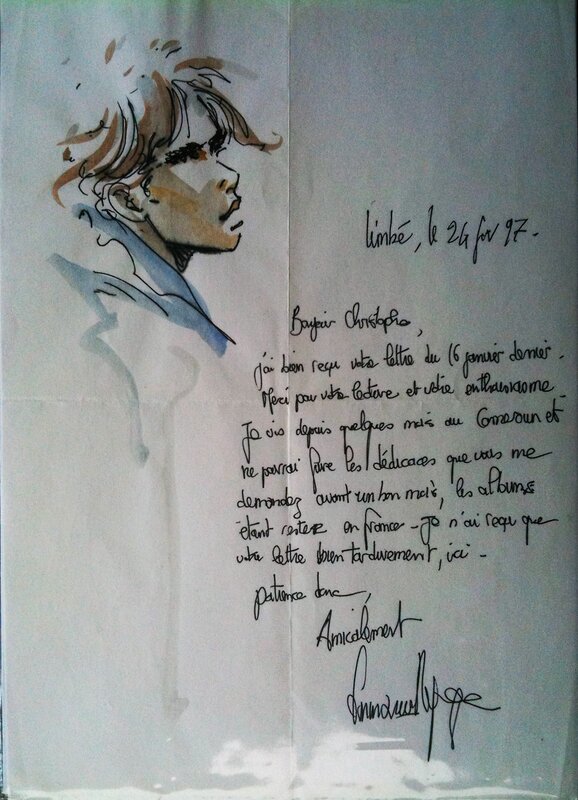 Limbé, le 24 fev 97.
Bonjour Christophe,
j'ai bien reçu votre lettre du 16 janvier dernier.
Merci pour votre lecture et votre enthousiasme.
Je vis depuis quelques mois au Cameroun et
ne pourrai faire les dédicaces que vous me
demandez avant un bon mois, les albums
étant restés en france - Je n'ai reçu que
votre lettre bien tardivement, ici -
patience donc,
Amicalement
Emmanuel Lepage